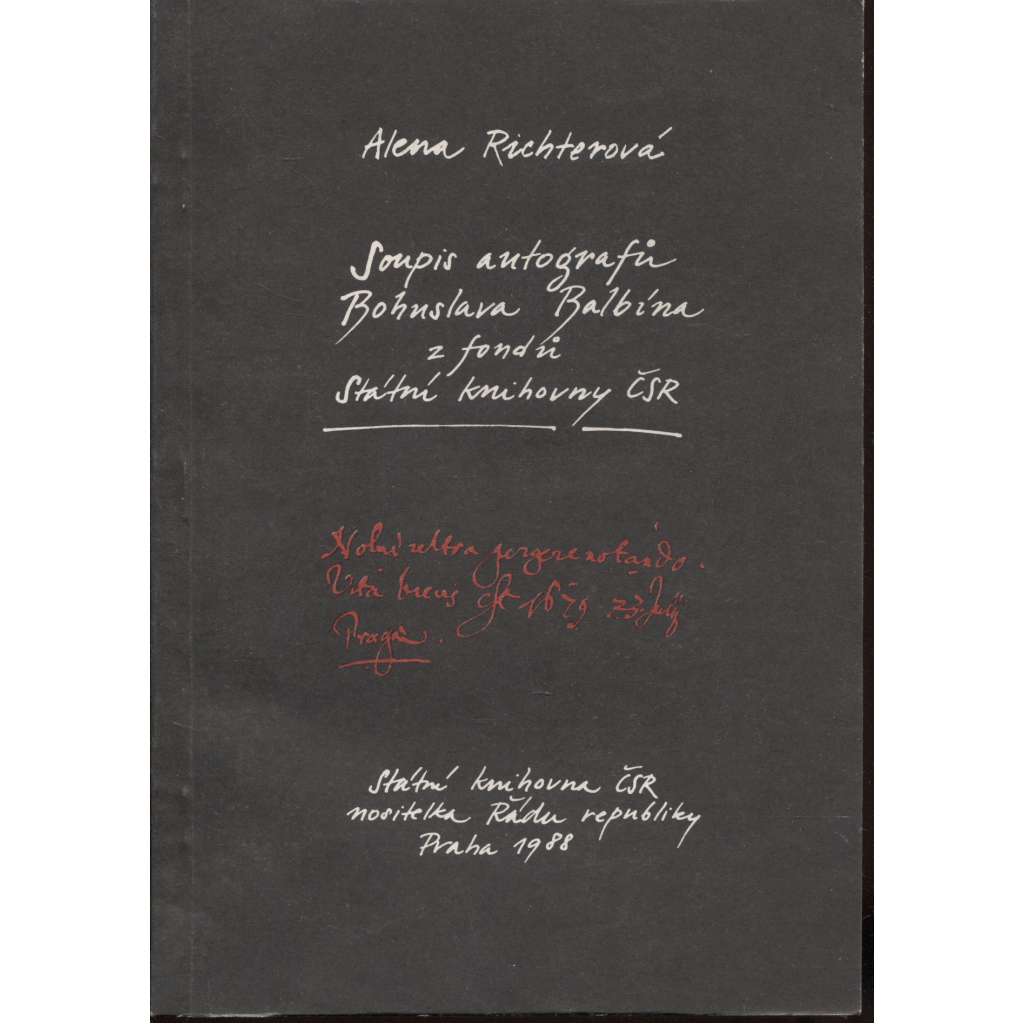 Alena Richterová
Soupis autografů
Bohuslava Balbína
z fondů
Státní knihovny ČSR
Nolui ultra pergere notando.
Vita brevis est 1679 23 Julij
Pragae.
Státní knihovna ČSR
nositelka Řádu republiky
Praha 1988